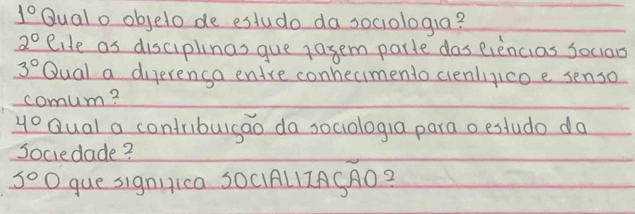 1º Qual o objeto de estudo da sociologia?
2º Cite as disciplinas que fazem parte das Ciências Sociais
3º Qual a diferença entre conhecimento científico e senso
comum?
4º Qual a contribuição da sociologia para o estudo da
sociedade?
5º O que significa SOCIALIZAÇÃO?